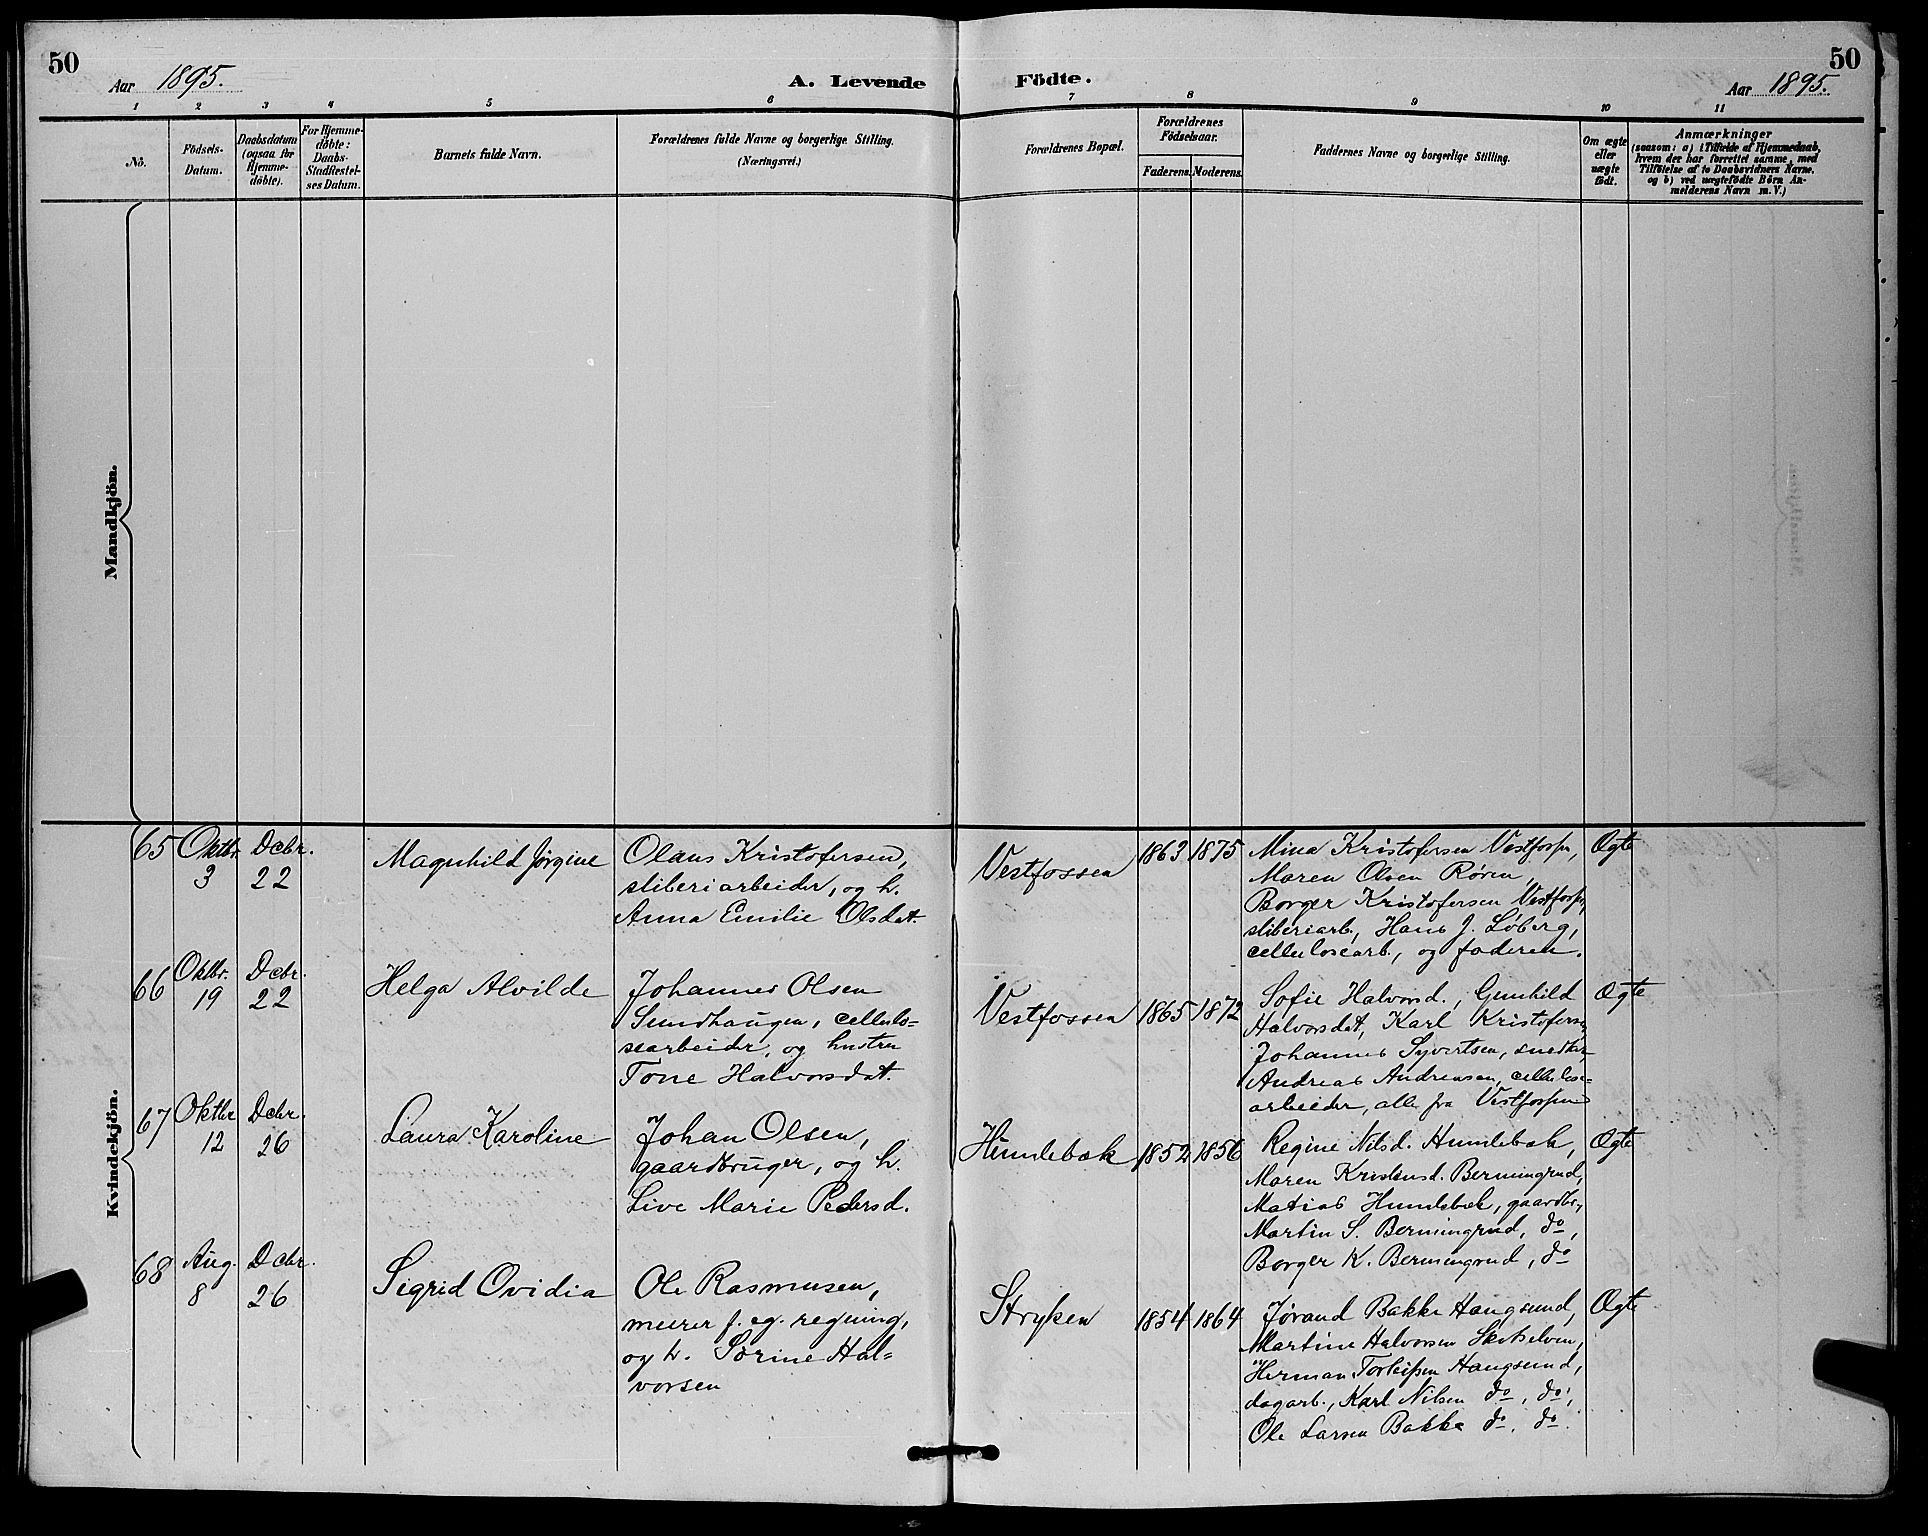 50
50
Aar 1895.
A. Levende
Födte.
Aar 1895.
1 2 3 4 5 6 7 8 9 10 11
No.
Födsels-
Datum.
Daabsdatum
(ogsaa for
Hjemme-
døbte).
For Hjemme-
døbte:
Daabs-
Stadfestel-
ses Datum.
Barnets fulde Navn.
Forældrenes fulde Navne og borgerlige Stilling.
(Næringsvei.)
Forældrenes Bopæl.
Forældrenes
Födselsaar.
Faderens.
Moderens.
Faddernes Navne og borgerlige Stilling.
Om ægte
eller
uægte
født.
Anmærkninger
(saasom: a) i Tilfælde af Hjemmedaab,
hvem der har forrettet samme, med
Tilføielse af to Daabsvidners Navne,
og b) ved uægtefødte Börn An-
melderens Navn m. V.)
Mandkjön.
Kvindekjön.
65
Oktbr.
3
Dcbr.
22
Magnhild Jørgine
Olaus Kristofersen,
sliberiarbeider, og h.
Anna Emilie Olsdat.
Vestfossen
1863
1875
Mina Kristofersen Vestfossen,
Maren Olsen Røren,
Borger Kristofersen Vestfossen,
sliberiarb., Hans J. Løberg,
cellulosearb., og faderen.
Ægte
66
Oktbr.
19
Dcbr.
22
Helga Alvilde
Johannes Olsen
Sundhaugen, cellulo-
searbeider, og hustru
Tone Halvorsdat.
Vestfossen
1865
1872
Sofie Halvorsd., Gunhild
Halvorsdat, Karl Kristofersen
Johannes Syvertsen, snedker
Andreas Andreasen, cellulose-
arbeider, alle fra Vestfossen
Ægte
67
Oktbr
12
Dcbr.
26
Laura Karoline
Johan Olsen,
gaardbruger, og h.
Live Marie Pedersd.
Humlebæk
1852
1856
Regine Nilsd. Humlebæk,
Maren Kristensd. Berningrud,
Matias Humlebæk, gaardbr.,
Martin S. Berningrud, do,
Borger K. Berningrud, do
Ægte
68
Aug.
8
Dcbr.
26
Sigrid Ovidia
Ole Rasmusen,
murer f. eg. regning,
og h. Sørine Hal-
vorsen
Stryken
1854
1864
Jørand Bakke Haugsund,
Martine Halvorsen Skotselven,
Herman Torkilsen Haugsund,
dagarb., Karl Nilsen do, do,
Ole Larsen Bakke do, do.
Ægte